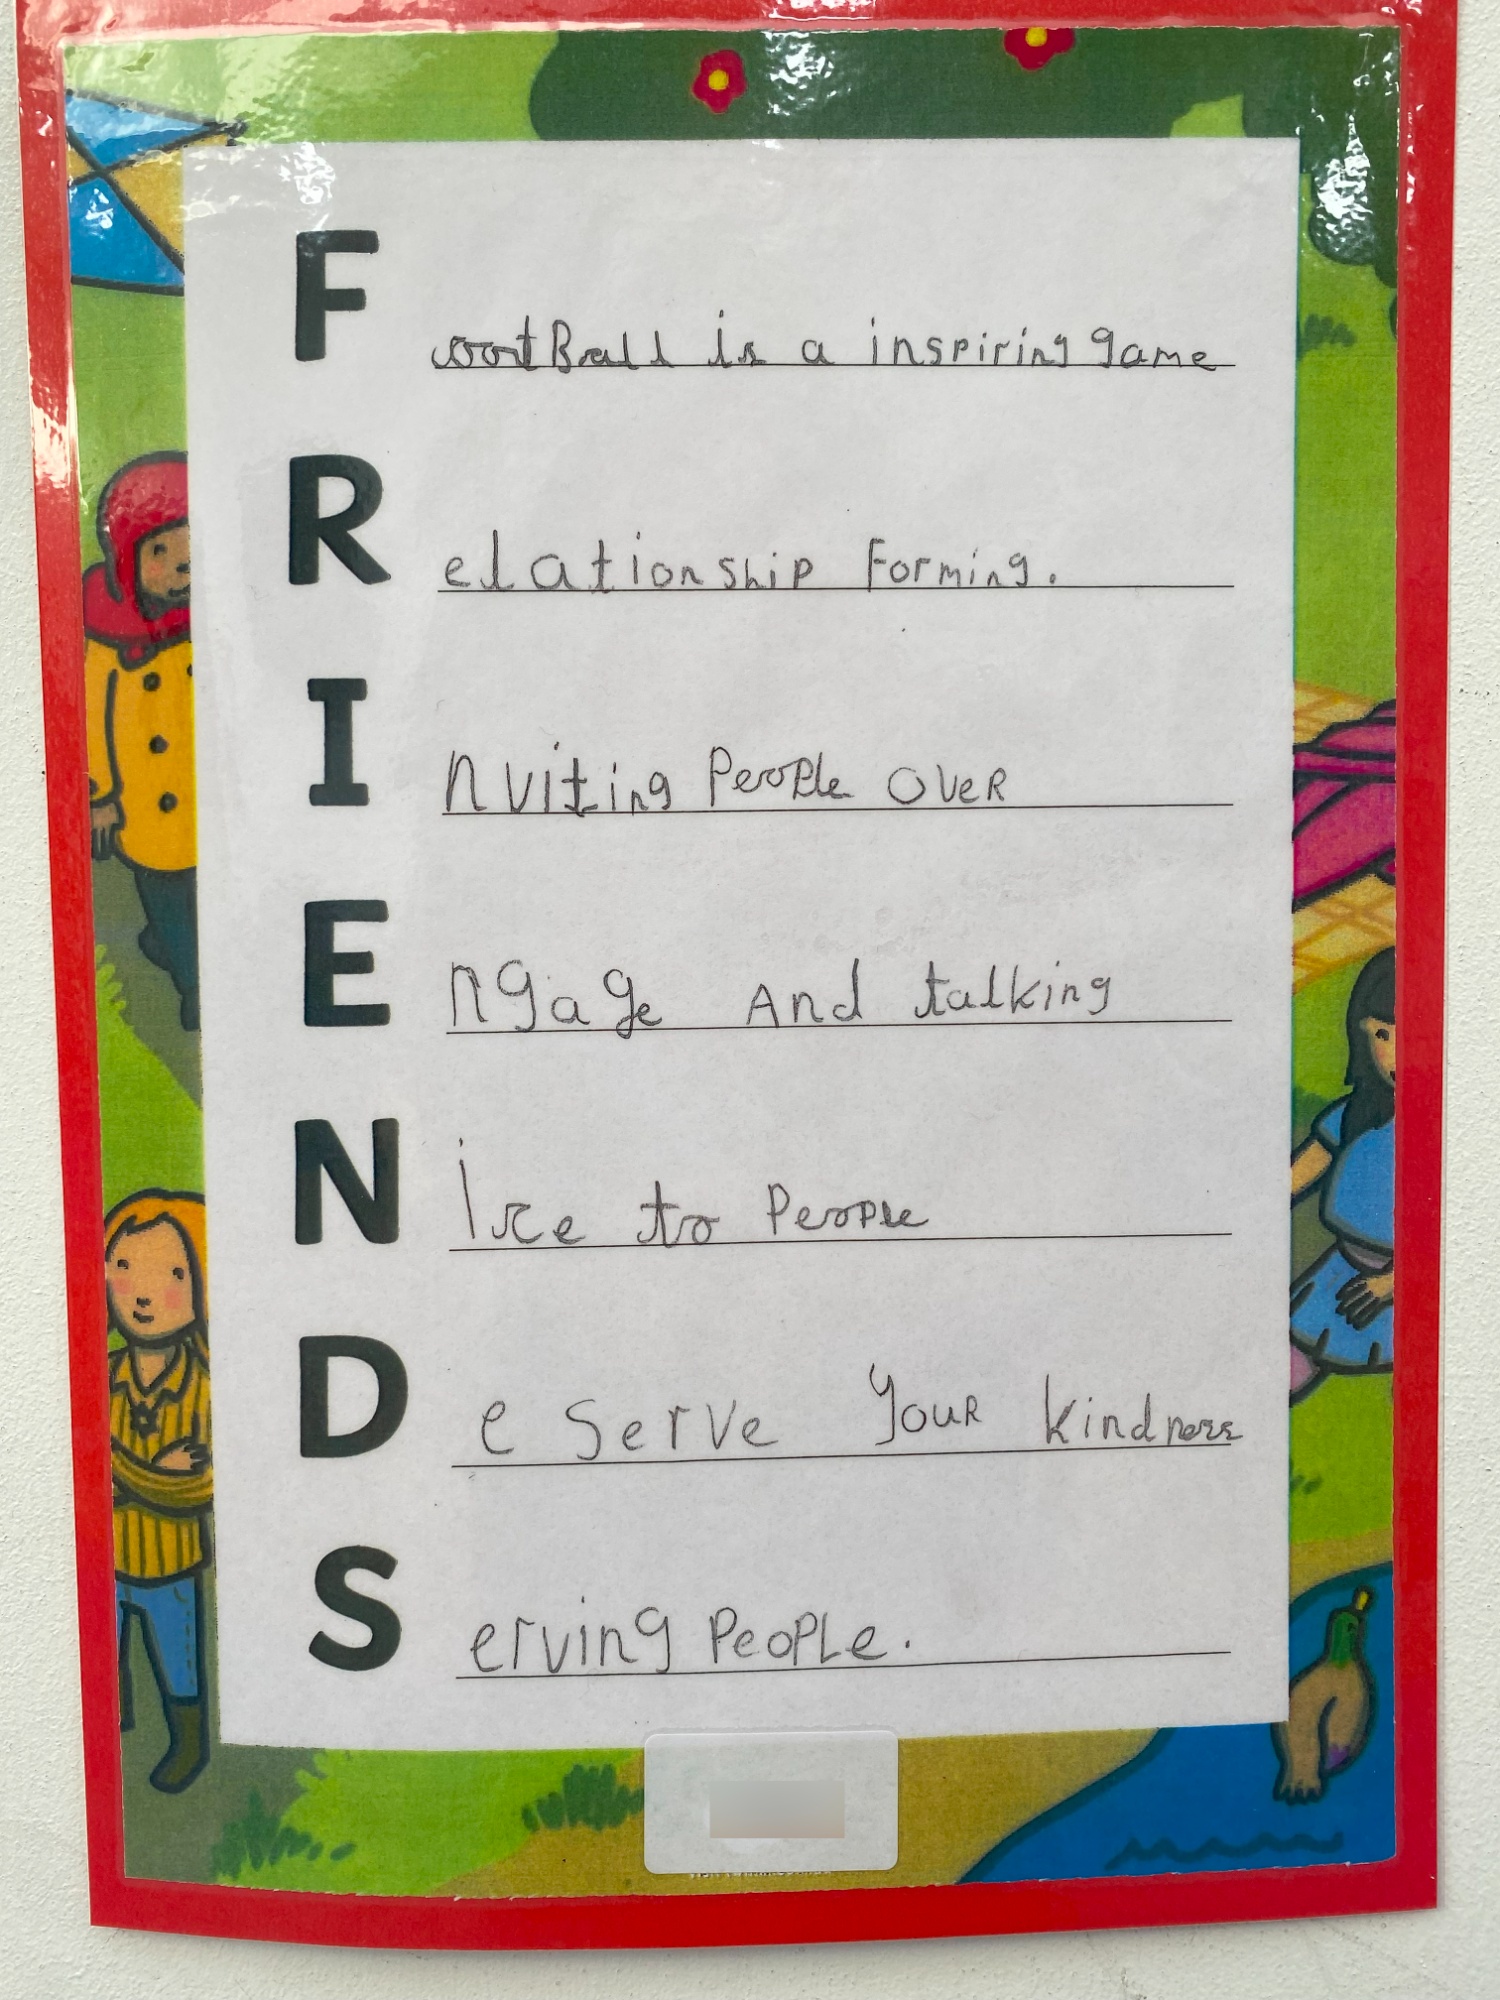 F ootBall is a inspiring game
R elationship Forming.
I nviting People over
E ngage And talking
N ice to People
D e serve your kindness
S erving People.